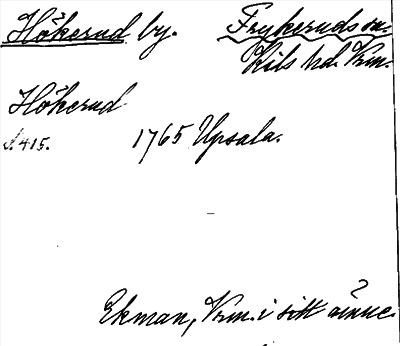 Hökerud by. Frykeruds sn.
Kils hd. Vrm.
Hökerud
A 415. 1765 Upsala.
Ekman, Vrm. i sitt ämne